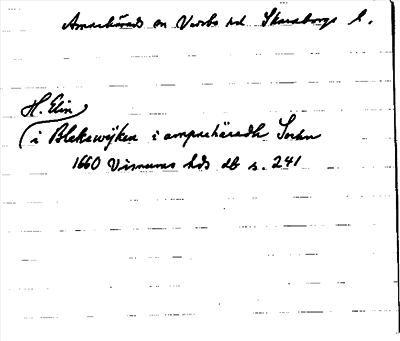 Amnehärads sn Vadsbo hd Skaraborgs l.
H. Elin
i Blekewijken i ampnehäradh Sochn
1660 Visnums hds db s. 241